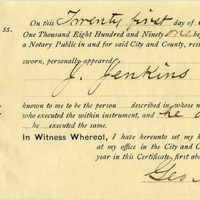 On this Twenty first day of
ss. One Thousand Eight Hundred and Ninety one be
a Notary Public in and for said City and County, resi
sworn, personally appeared
J. Jenkins
known to me to be the person described in whose n
who executed the within instrument, and he
he executed the same.
In Witness Whereof, I have hereunto set my h
at my office in the City and C
year in this Certificate, first abo
Geo